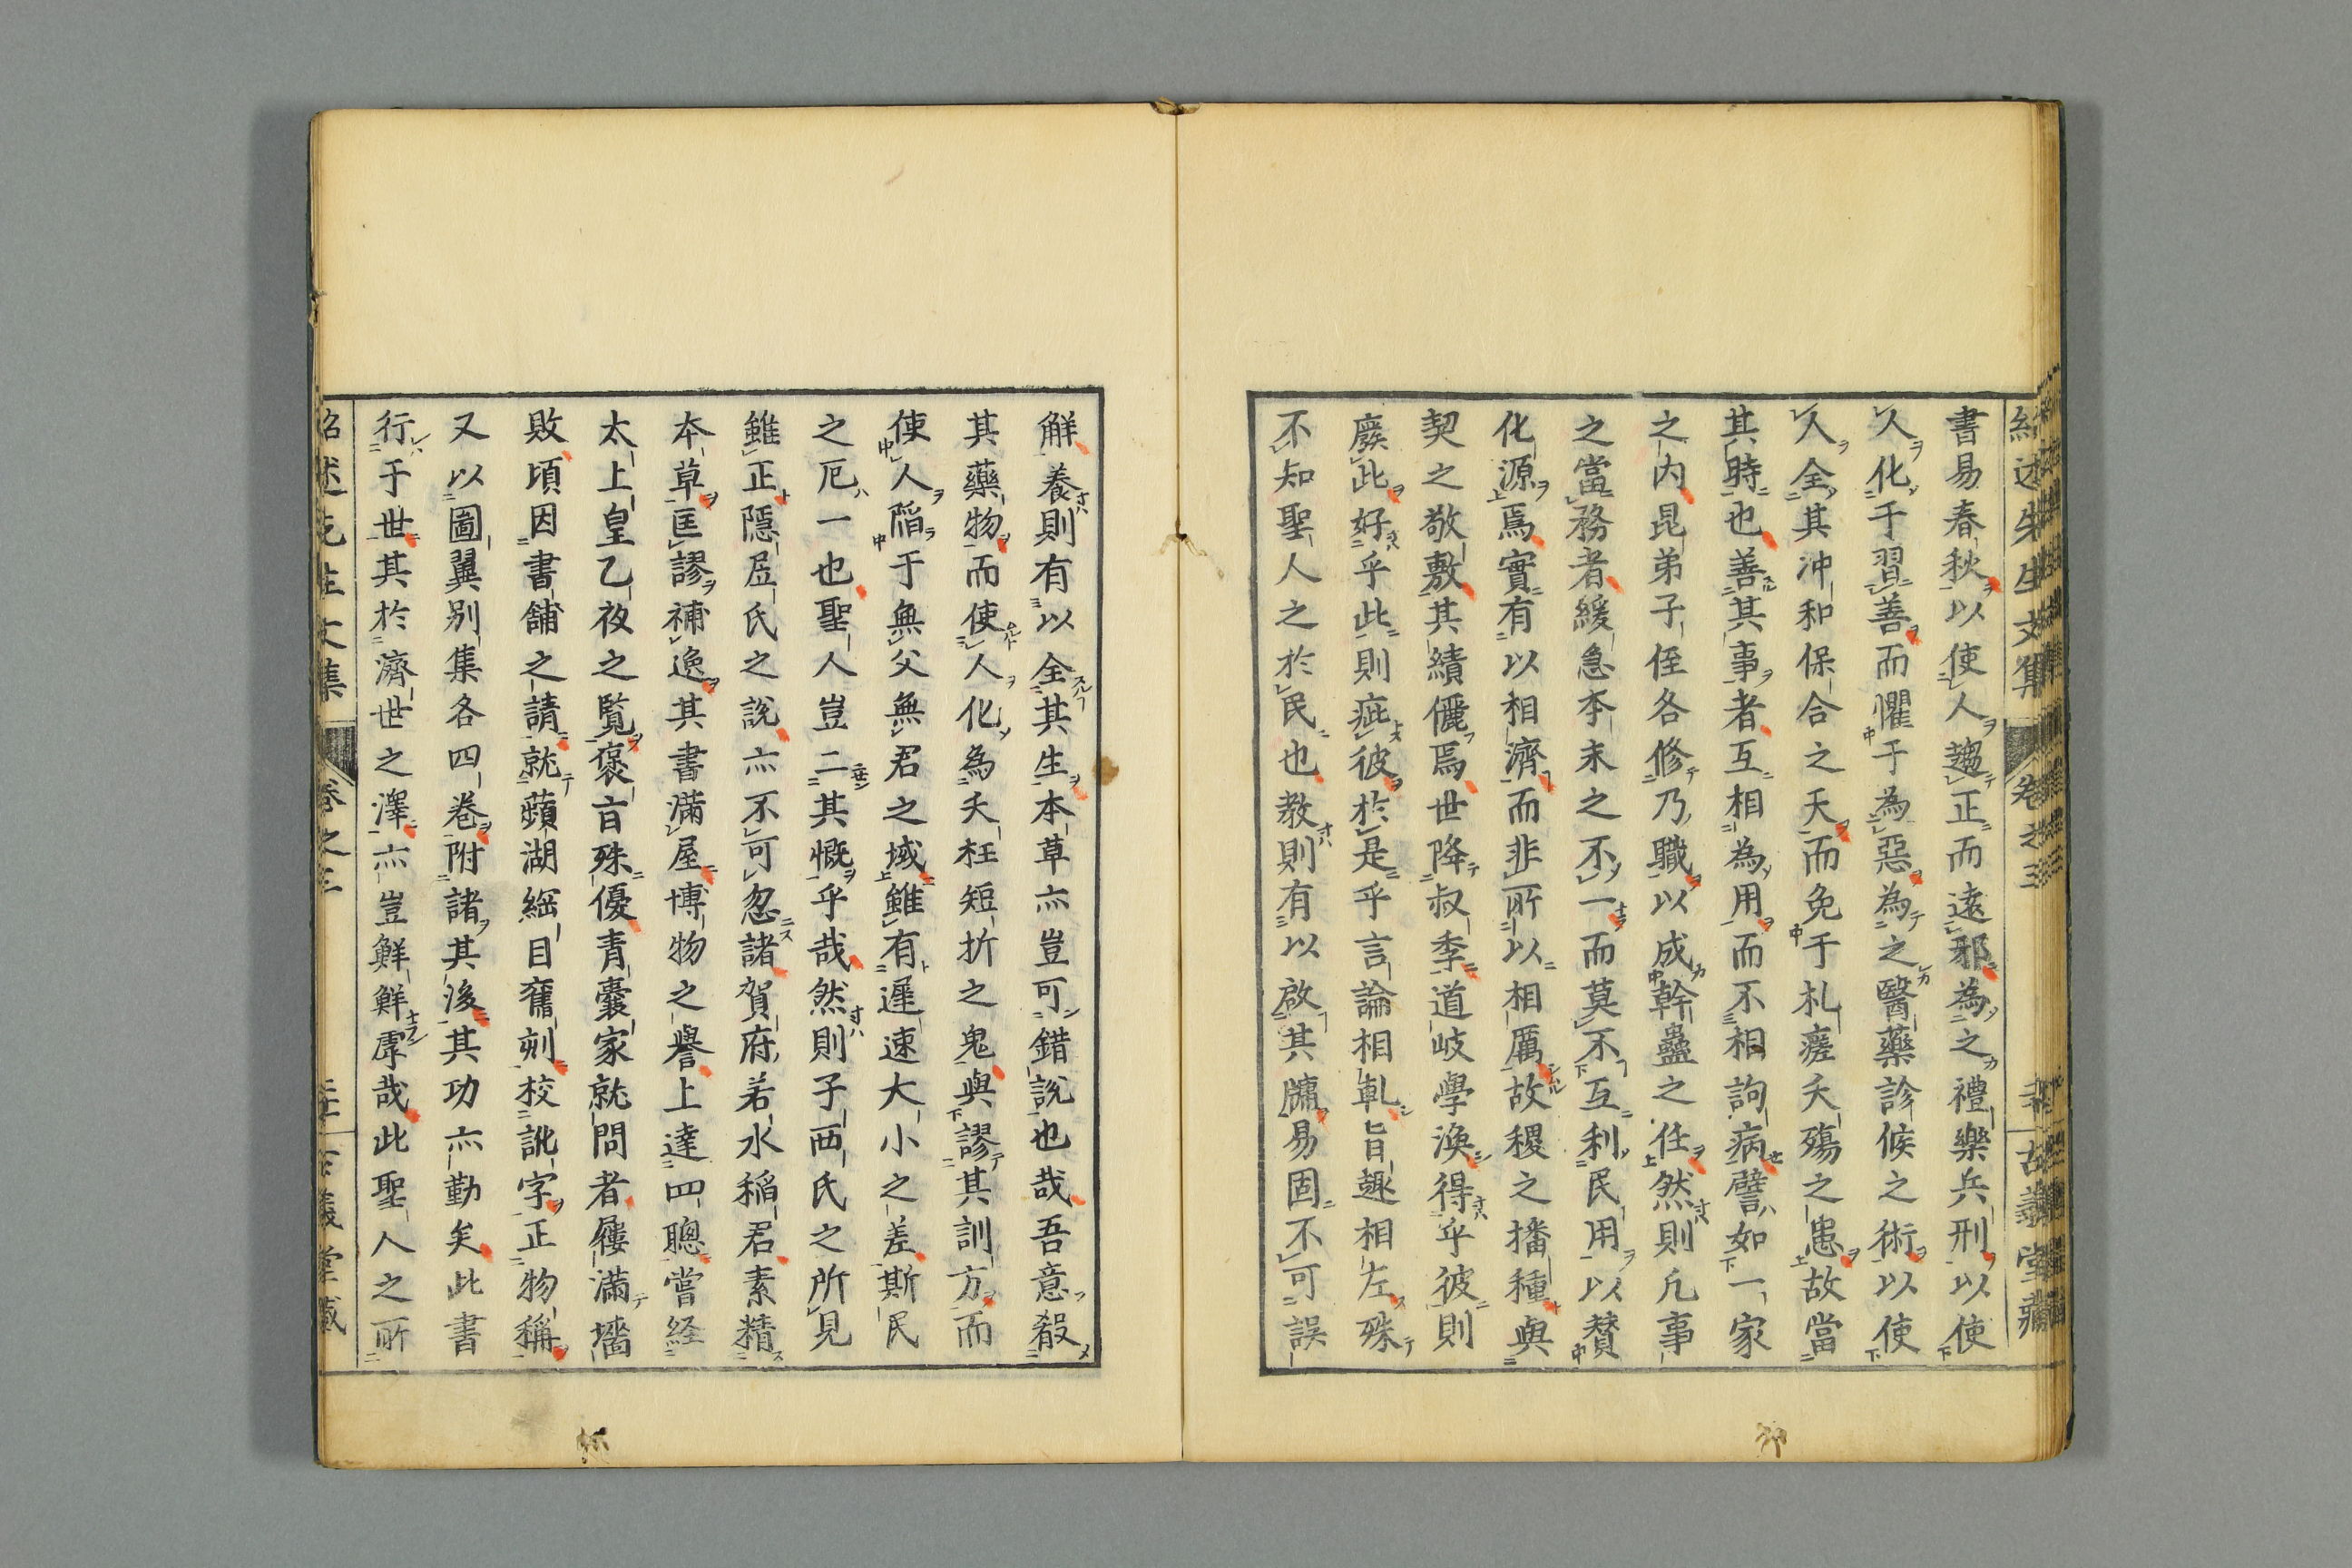 書易春秋以使人趨正而遠邪為之禮樂兵刑以使
人化于習善而懼于為惡為之醫藥診候之術以使
人全其沖和保合之天而免于札瘥夭殤之患故當
其時也善其事者互相為用而不相詢病譬如一家
之内昆弟子侄各修乃職以成幹蠱之任然則凡事
之當務者緩急本末之不一而莫不互利民用以賛
化源焉實有以相濟而非所以相厲故稷之播種與
契之敬敷其績儷焉世降叔季道岐學渙得乎彼則
廢此好乎此則疵彼於是乎言論相軋旨趣相左殊
不知聖人之於民也教則有以啟其牖易固不可誤
解養則有以全其生本草亦豈可錯說也哉吾意殺
其藥物而使人化為夭枉短折之鬼與謬其訓方而
使人陷于無父無君之域雖有遲速大小之差斯民
之厄一也聖人豈二其慨乎哉然則子西氏之所見
雖正隱居氏之說亦不可忽諸賀府若水稲君素精
本草匡謬補逸其書滿屋博物之譽上達四聰嘗経
太上皇乙夜之覽褒言殊優青囊家就問者屨滿墻
敗頃因書舖之請就蘋湖綱目舊刻校訛字正物稱
又以圖翼別集各四卷附諸其後其功亦勤矣此書
行于世其於濟世之澤亦豈鮮鮮虖哉此聖人之所
卷之三